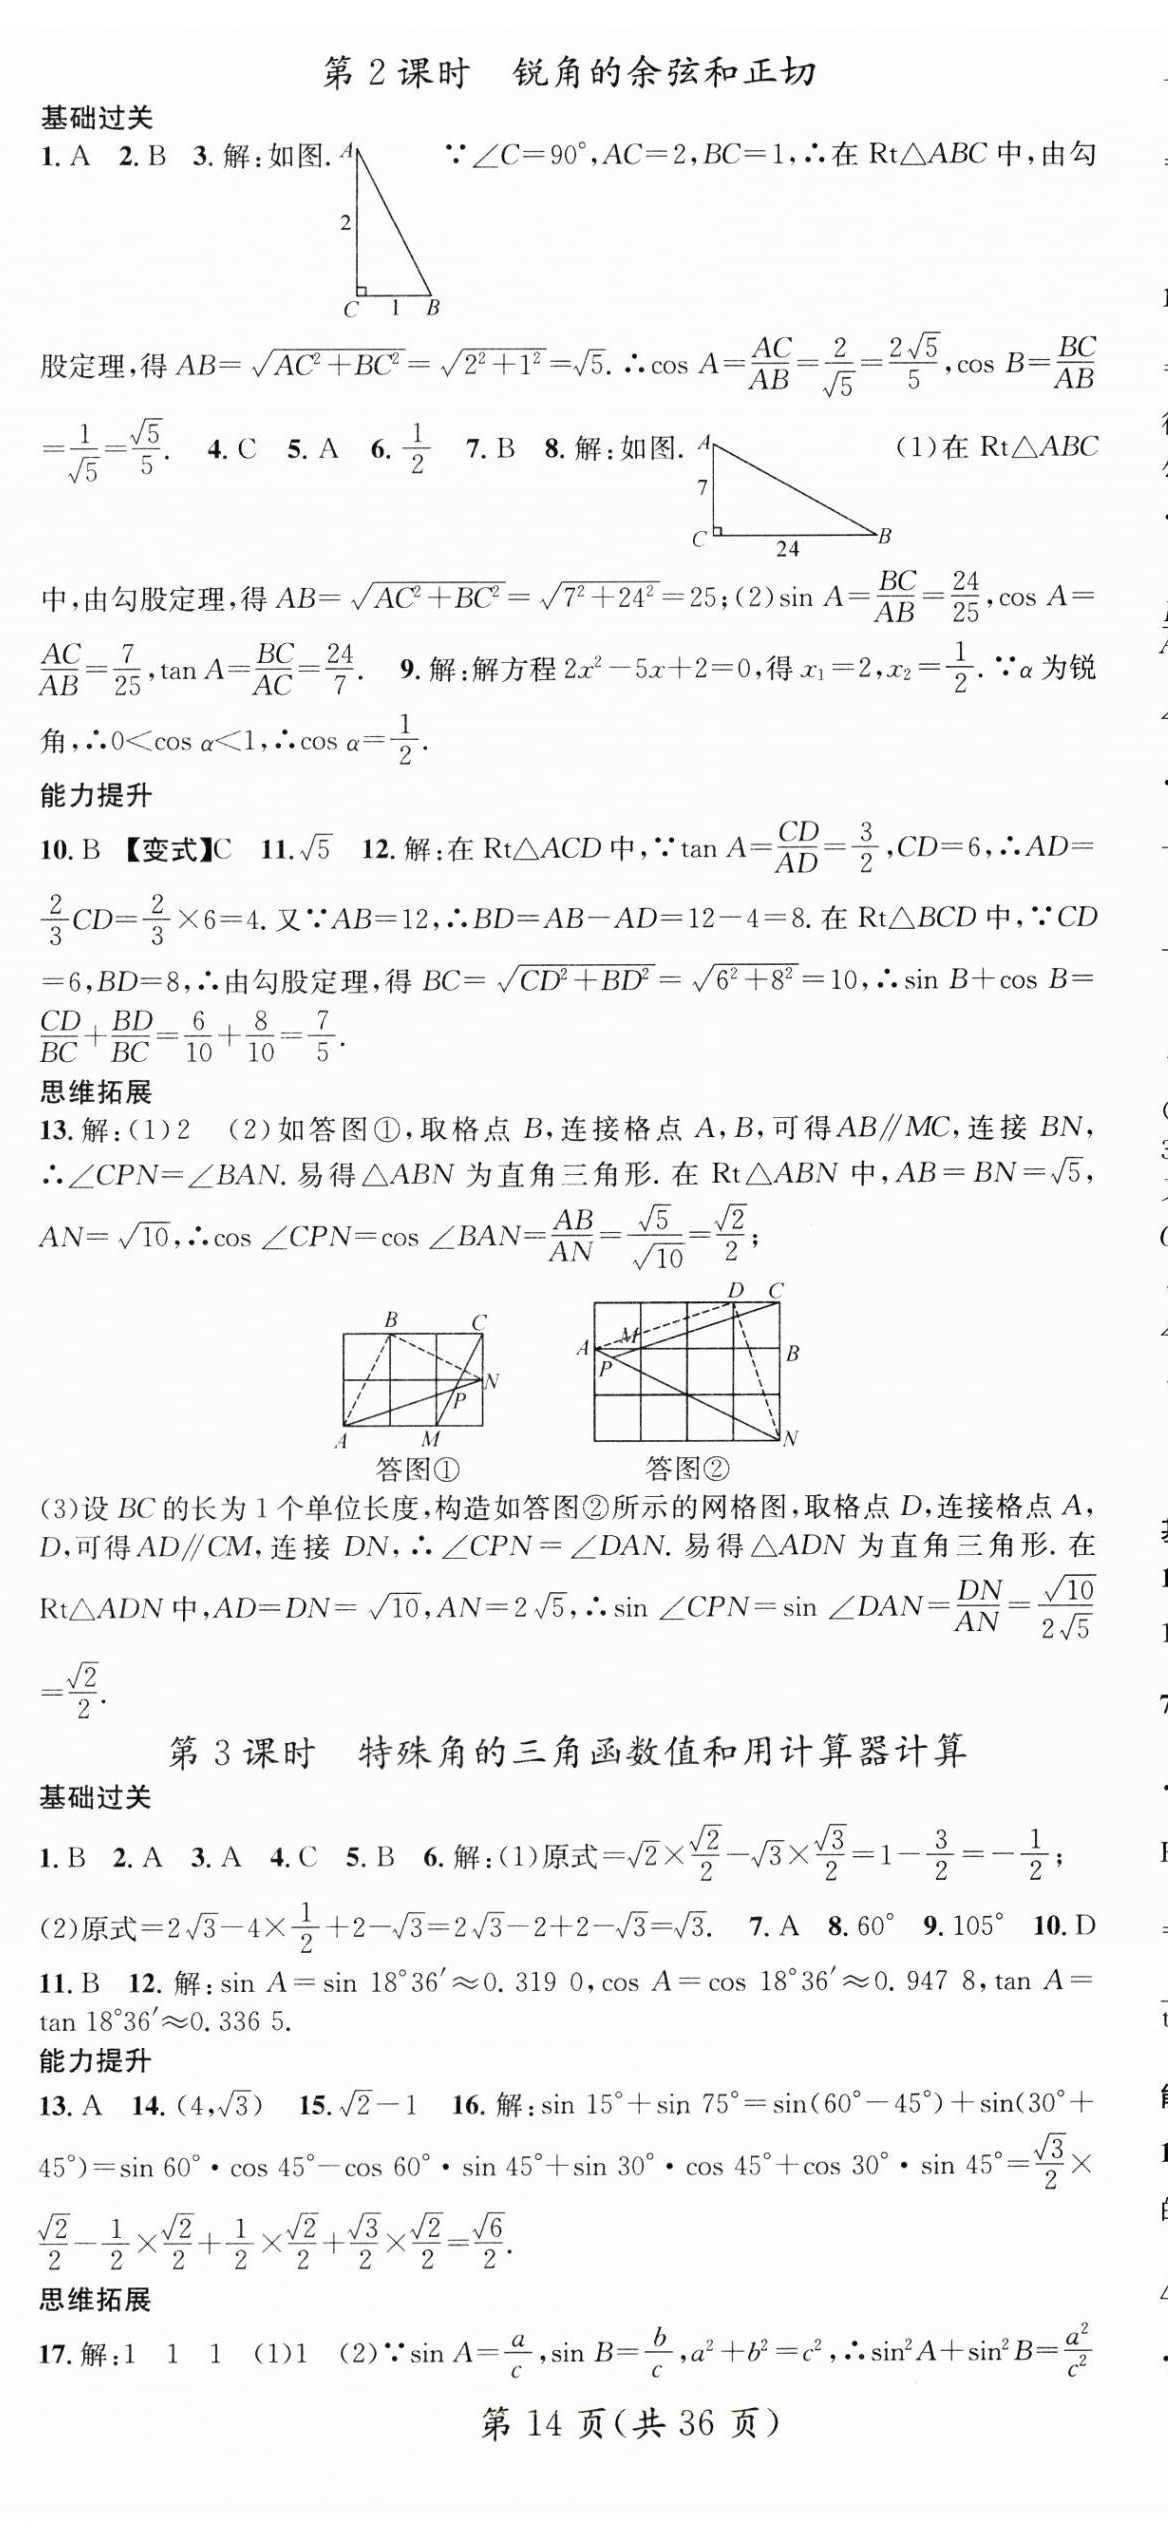 第 2 课时　锐角的余弦和正切
基础过关
1. A　2. B　3. 解:如图. A　∵∠C=90°,AC=2,BC=1,∴在 Rt△ABC 中,由勾
2
C　1　B
股定理,得 AB=√(AC²+BC²)=√(2²+1²)=√5. ∴cos A=AC/AB=2/√5=2√5/5,cos B=BC/AB
=1/√5=√5/5.　4. C　5. A　6. 1/2　7. B　8. 解:如图. A　(1)在 Rt△ABC
7
C　24　B
中,由勾股定理,得 AB=√(AC²+BC²)=√(7²+24²)=25;(2)sin A=BC/AB=24/25,cos A=
AC/AB=7/25,tan A=BC/AC=24/7.　9. 解:解方程 2x²-5x+2=0,得 x₁=2,x₂=1/2. ∵α 为锐
角,∴0<cos α<1,∴cos α=1/2.
能力提升
10. B 【变式】C　11. √5　12. 解:在 Rt△ACD 中,∵tan A=CD/AD=3/2,CD=6,∴AD=
2/3CD=2/3×6=4. 又∵AB=12,∴BD=AB-AD=12-4=8. 在 Rt△BCD 中,∵CD
=6,BD=8,∴由勾股定理,得 BC=√(CD²+BD²)=√(6²+8²)=10,∴sin B+cos B=
CD/BC+BD/BC=6/10+8/10=7/5.
思维拓展
13. 解:(1)2　(2)如答图①,取格点 B,连接格点 A,B,可得AB∥MC,连接 BN,
∴∠CPN=∠BAN. 易得△ABN 为直角三角形. 在 Rt△ABN 中,AB=BN=√5,
AN=√10,∴cos ∠CPN=cos ∠BAN=AB/AN=√5/√10=√2/2;
B　C
N
P
A　M
答图①
D　C
A　M　B
P
N
答图②
(3)设 BC 的长为 1 个单位长度,构造如答图②所示的网格图,取格点 D,连接格点 A,
D,可得AD∥CM,连接 DN,∴∠CPN=∠DAN. 易得△ADN 为直角三角形. 在
Rt△ADN 中,AD=DN=√10,AN=2√5,∴sin ∠CPN=sin ∠DAN=DN/AN=√10/2√5
=√2/2.
第 3 课时　特殊角的三角函数值和用计算器计算
基础过关
1. B　2. A　3. A　4. C　5. B　6. 解:(1)原式=√2×√2/2-√3×√3/2=1-3/2=-1/2;
(2)原式=2√3-4×1/2+2-√3=2√3-2+2-√3=√3.　7. A　8. 60°　9. 105°　10. D
11. B　12. 解:sin A=sin 18°36′≈0. 319 0,cos A=cos 18°36′≈0. 947 8,tan A=
tan 18°36′≈0. 336 5.
能力提升
13. A　14. (4,√3)　15. √2-1　16. 解:sin 15°+sin 75°=sin(60°-45°)+sin(30°+
45°)=sin 60°·cos 45°-cos 60°·sin 45°+sin 30°·cos 45°+cos 30°·sin 45°=√3/2×
√2/2-1/2×√2/2+1/2×√2/2+√3/2×√2/2=√6/2.
思维拓展
17. 解:1　1　1　(1)1　(2)∵sin A=a/c,sin B=b/c,a²+b²=c²,∴sin²A+sin²B=a²/c²
第 14 页(共 36 页)